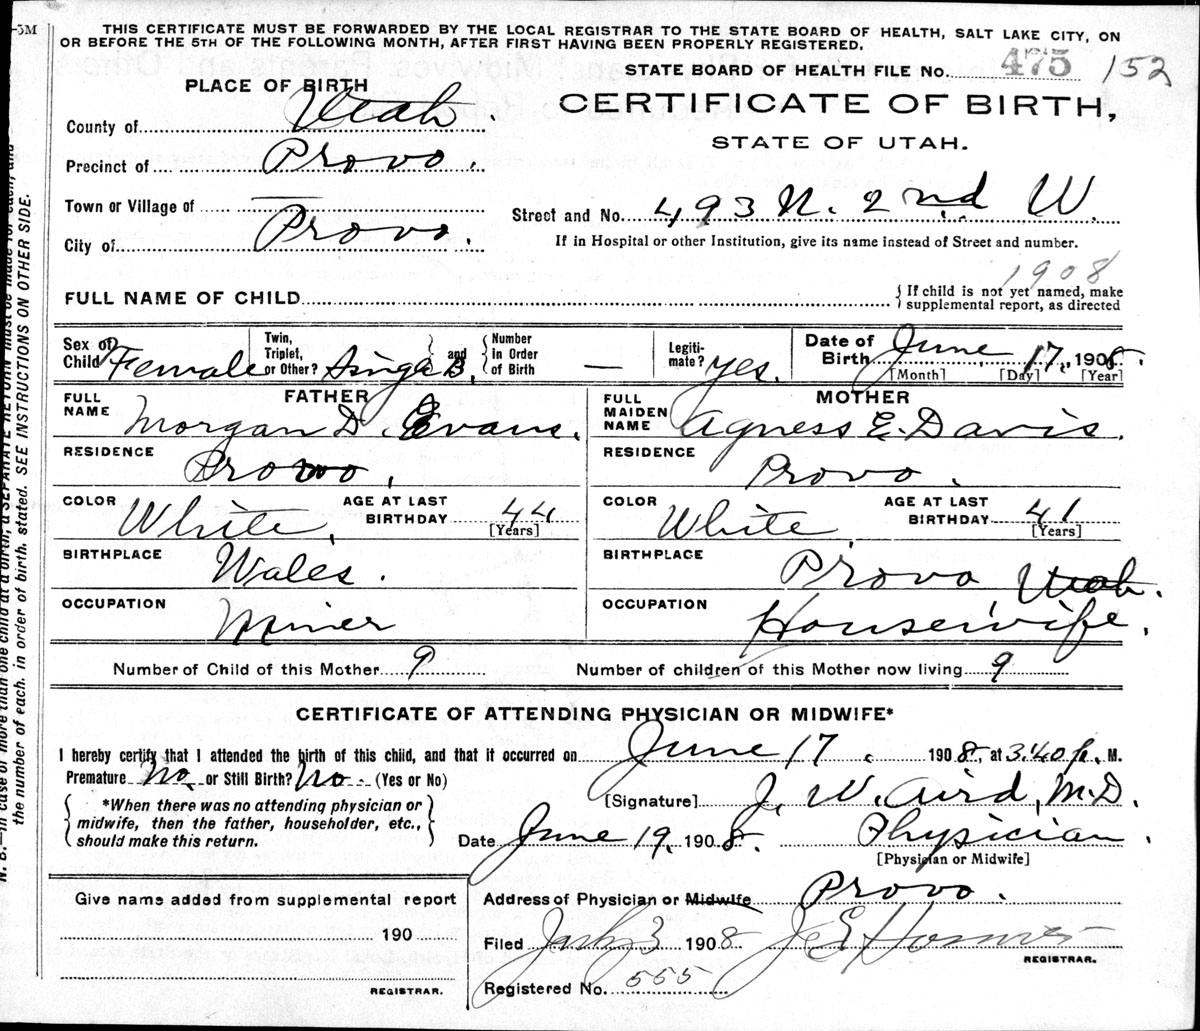 -5M THIS CERTIFICATE MUST BE FORWARDED BY THE LOCAL REGISTRAR TO THE STATE BOARD OF HEALTH, SALT LAKE CITY, ON
OR BEFORE THE 5TH OF THE FOLLOWING MONTH, AFTER FIRST HAVING BEEN PROPERLY REGISTERED.
STATE BOARD OF HEALTH FILE No. 475 152
PLACE OF BIRTH
CERTIFICATE OF BIRTH,
STATE OF UTAH.
County of Utah.
Precinct of Provo.
Town or Village of —
City of Provo.
Street and No. 493 N. 2nd W.
If in Hospital or other Institution, give its name instead of Street and number.
1908
FULL NAME OF CHILD { If child is not yet named, make
supplemental report, as directed
Sex of Child Female
Twin, Triplet, or Other? Single and { Number in Order of Birth —
Legiti- mate? yes.
Date of Birth June 17, 1908.
[Month] [Day] [Year]
FATHER
FULL NAME Morgan D. Evans.
RESIDENCE Provo.
COLOR White, AGE AT LAST BIRTHDAY 44
[Years]
BIRTHPLACE Wales.
OCCUPATION Miner
MOTHER
FULL MAIDEN NAME Agness E. Davis.
RESIDENCE Provo.
COLOR White, AGE AT LAST BIRTHDAY 41
[Years]
BIRTHPLACE Provo Utah.
OCCUPATION Housewife.
Number of Child of this Mother 9 Number of children of this Mother now living 9
CERTIFICATE OF ATTENDING PHYSICIAN OR MIDWIFE*
I hereby certify that I attended the birth of this child, and that it occurred on June 17, 1908, at 3.40 p. M.
Premature No. or Still Birth? No. (Yes or No)
[Signature] J. W. Aird, M.D.
*When there was no attending physician or
midwife, then the father, householder, etc.,
should make this return.
Date June 19, 1908. Physician.
[Physician or Midwife]
Give name added from supplemental report
190
REGISTRAR.
Address of Physician or Midwife Provo.
Filed 3 1908
REGISTRAR.
Registered No. 555
N. B.—In case of more than one child at a birth, a SEPARATE RETURN must be made for each, and
the number of each, in order of birth, stated. SEE INSTRUCTIONS ON OTHER SIDE.